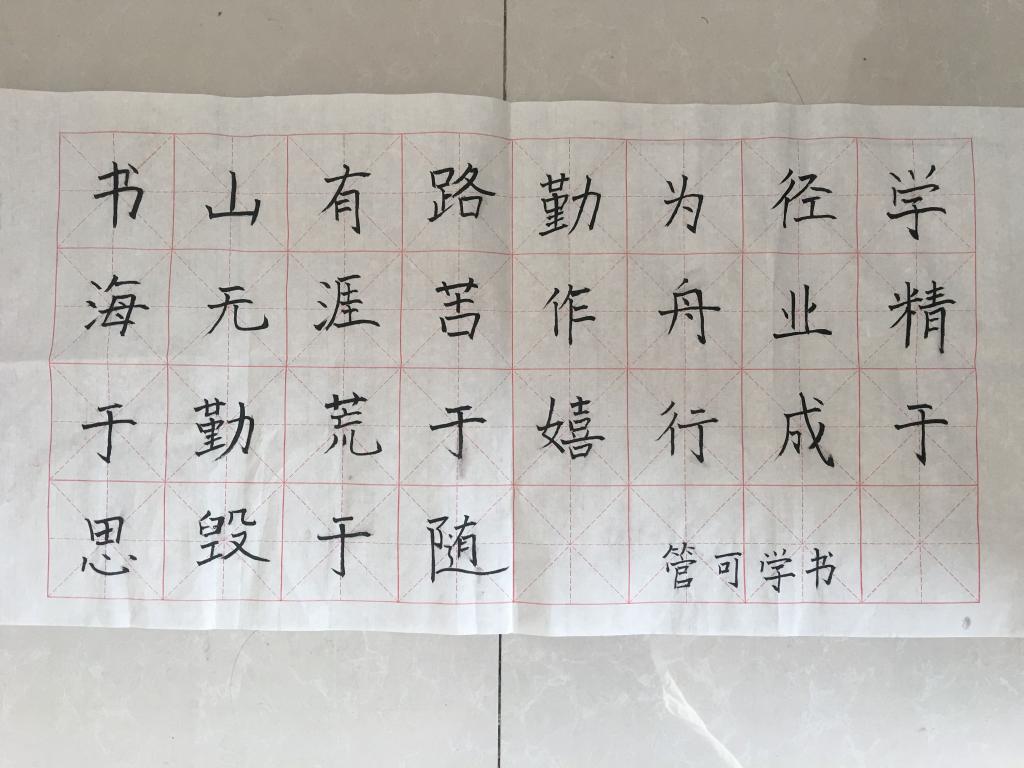 书山有路勤为径学
海无涯苦作舟业精
于勤荒于嬉行成于
思毁于随
管可学书